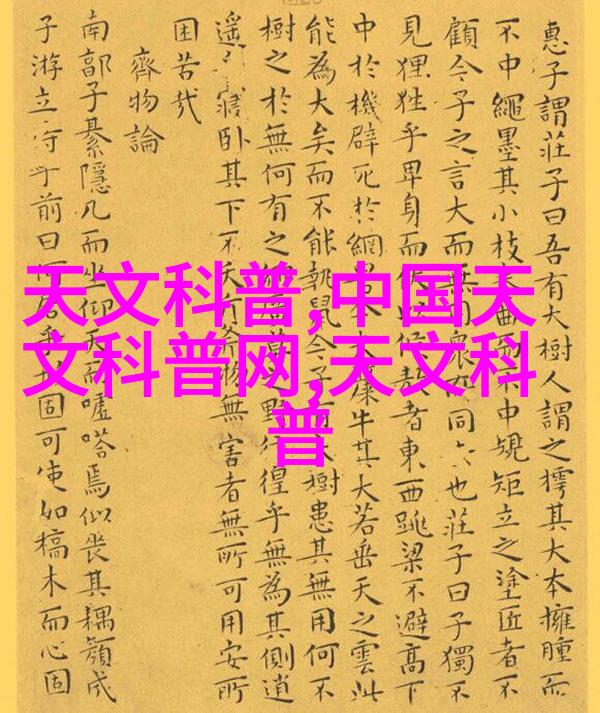 天文科普,中国天
文科普网,天文科
普
惠子謂莊子曰吾有大樹人謂之樗其大本擁腫而
不中繩墨其小枝曲不中規矩立之塗匠者不
顧今子之言大而無用衆同也莊子曰子獨不
見狸狌乎卑身而伏候敖者東西跳梁不避高下
中於機辟死於網牛其大若垂天之雲此
能為大矣而不能執鼠今子有大樹患其無用何不
樹之於無何有之野彷徨乎無為其側逍
遙寢卧其下不夭斤斧物無害者無所可用安所
困苦哉
齊物論
南郭子綦隱几而坐仰天而噓嗒焉似喪其耦顏成
子游立侍乎前曰何居乎固可使如槁木而心固